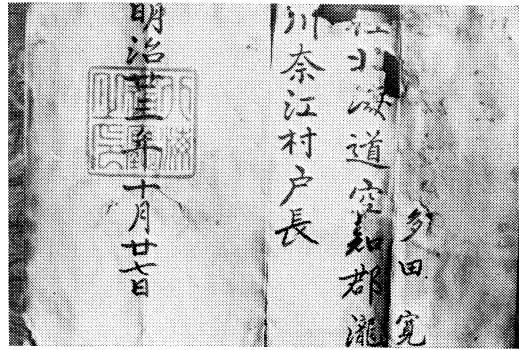 多田寛
北海道空知郡瀧
川奈江村戸長
明治廿三年十月廿七日